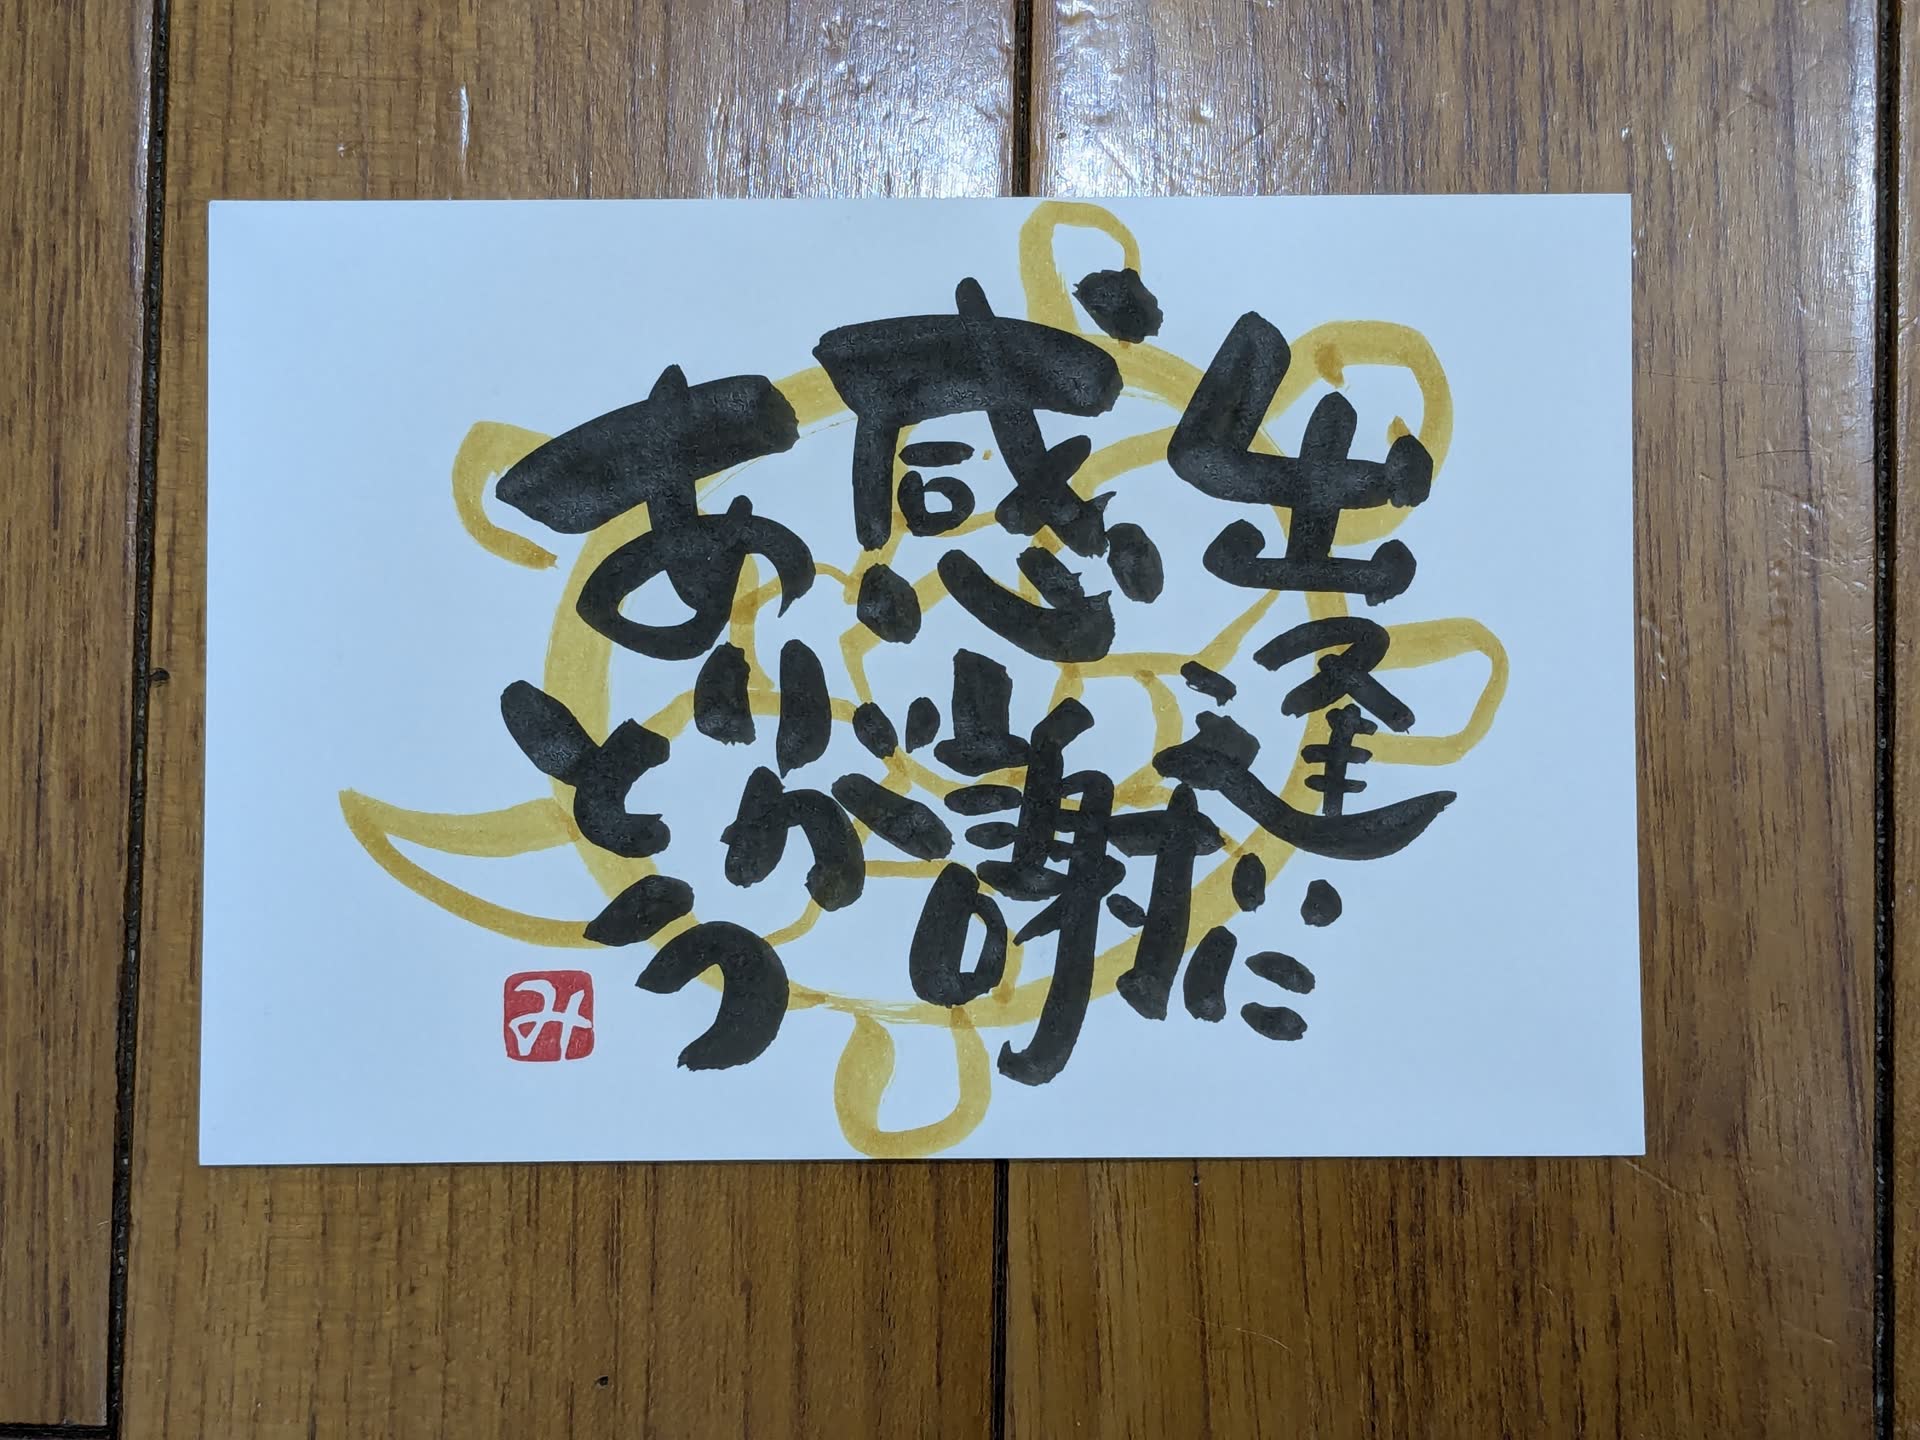 出逢いに
感謝
ありがとう
み